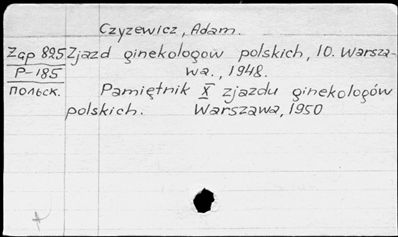 Czyzewicz, Adam.
Zap 825 Zjazd ginekologow polskich, 10. Warsza-
P-185 wa., 1948.
польск. Pamiętnik X zjazdu ginekologów
polskich. Warszawa, 1950